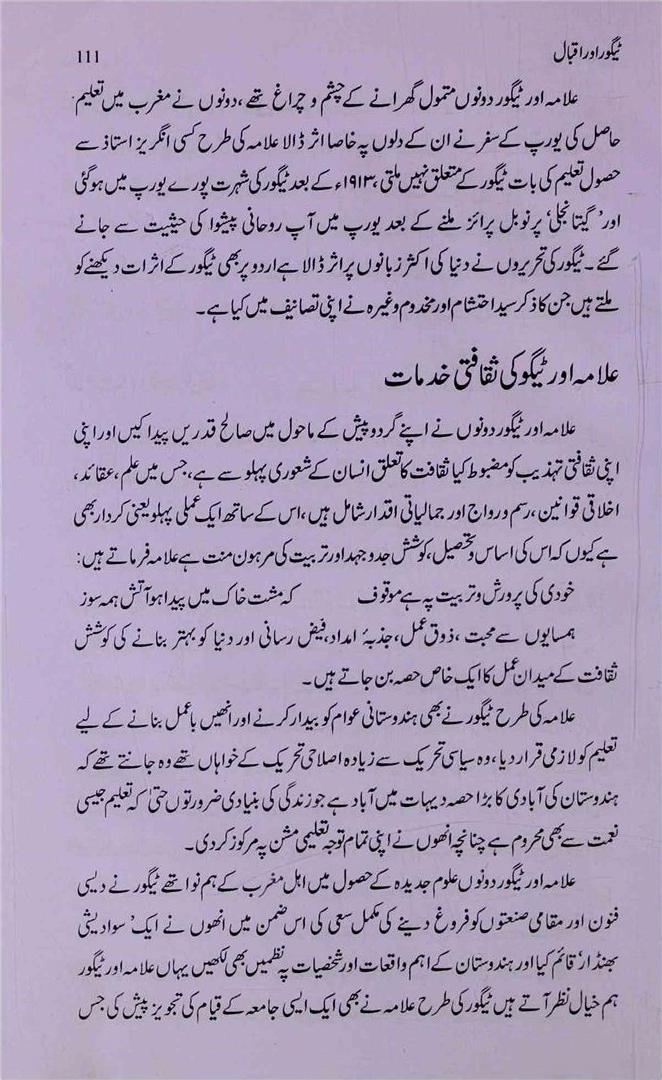 ٹیگور اور اقبال
111
علامہ اور ٹیگور دونوں متمول گھرانے کے چشم و چراغ تھے، دونوں نے مغرب میں تعلیم
حاصل کی یورپ کے سفر نے ان کے دلوں پہ خاصا اثر ڈالا علامہ کی طرح کسی انگریز استاذ سے
حصول تعلیم کی بات ٹیگور کے متعلق نہیں ملتی، ۱۹۱۳ء کے بعد ٹیگور کی شہرت پورے یورپ میں ہوگئی
اور ’گیتانجلی‘ پر نوبل پرائز ملنے کے بعد یورپ میں آپ روحانی پیشوا کی حیثیت سے جانے
گئے۔ ٹیگور کی تحریروں نے دنیا کی اکثر زبانوں پر اثر ڈالا ہے اردو پر بھی ٹیگور کے اثرات دیکھنے کو
ملتے ہیں جن کا ذکر سید احتشام اور مخدوم وغیرہ نے اپنی تصانیف میں کیا ہے۔
علامہ اور ٹیگو کی ثقافتی خدمات
علامہ اور ٹیگور دونوں نے اپنے گردو پیش کے ماحول میں صالح قدریں پیدا کیں اور اپنی
اپنی ثقافتی تہذیب کو مضبوط کیا ثقافت کا تعلق انسان کے شعوری پہلو سے ہے، جس میں علم، عقائد،
اخلاقی قوانین، رسم و رواج اور جمالیاتی اقدار شامل ہیں، اس کے ساتھ ایک عملی پہلو یعنی کردار بھی
ہے کیوں کہ اس کی اساس و تحصیل، کوشش جدوجہد اور تربیت کی مرہون منت ہے علامہ فرماتے ہیں:
خودی کی پرورش و تربیت پہ ہے موقوف کہ مشت خاک میں پیدا ہو آتش ہمہ سوز
ہمسایوں سے محبت، ذوق عمل، جذبۂ امداد، فیض رسانی اور دنیا کو بہتر بنانے کی کوشش
ثقافت کے میدان عمل کا ایک خاص حصہ بن جاتے ہیں۔
علامہ کی طرح ٹیگور نے بھی ہندوستانی عوام کو بیدار کرنے اور انھیں باعمل بنانے کے لیے
تعلیم کو لازمی قرار دیا، وہ سیاسی تحریک سے زیادہ اصلاحی تحریک کے خواہاں تھے وہ جانتے تھے کہ
ہندوستان کی آبادی کا بڑا حصہ دیہات میں آباد ہے جو زندگی کی بنیادی ضرورتوں حتیٰ کہ تعلیم جیسی
نعمت سے بھی محروم ہے چنانچہ انھوں نے اپنی تمام توجہ تعلیمی مشن پہ مرکوز کردی۔
علامہ اور ٹیگور دونوں علوم جدیدہ کے حصول میں اہل مغرب کے ہم نوا تھے ٹیگور نے دیسی
فنون اور مقامی صنعتوں کو فروغ دینے کی مکمل سعی کی اس ضمن میں انھوں نے ایک ’سوادیشی
بھنڈار‘ قائم کیا اور ہندوستان کے اہم واقعات اور شخصیات پہ نظمیں بھی لکھیں یہاں علامہ اور ٹیگور
ہم خیال نظر آتے ہیں ٹیگور کی طرح علامہ نے بھی ایک ایسی جامعہ کے قیام کی تجویز پیش کی جس